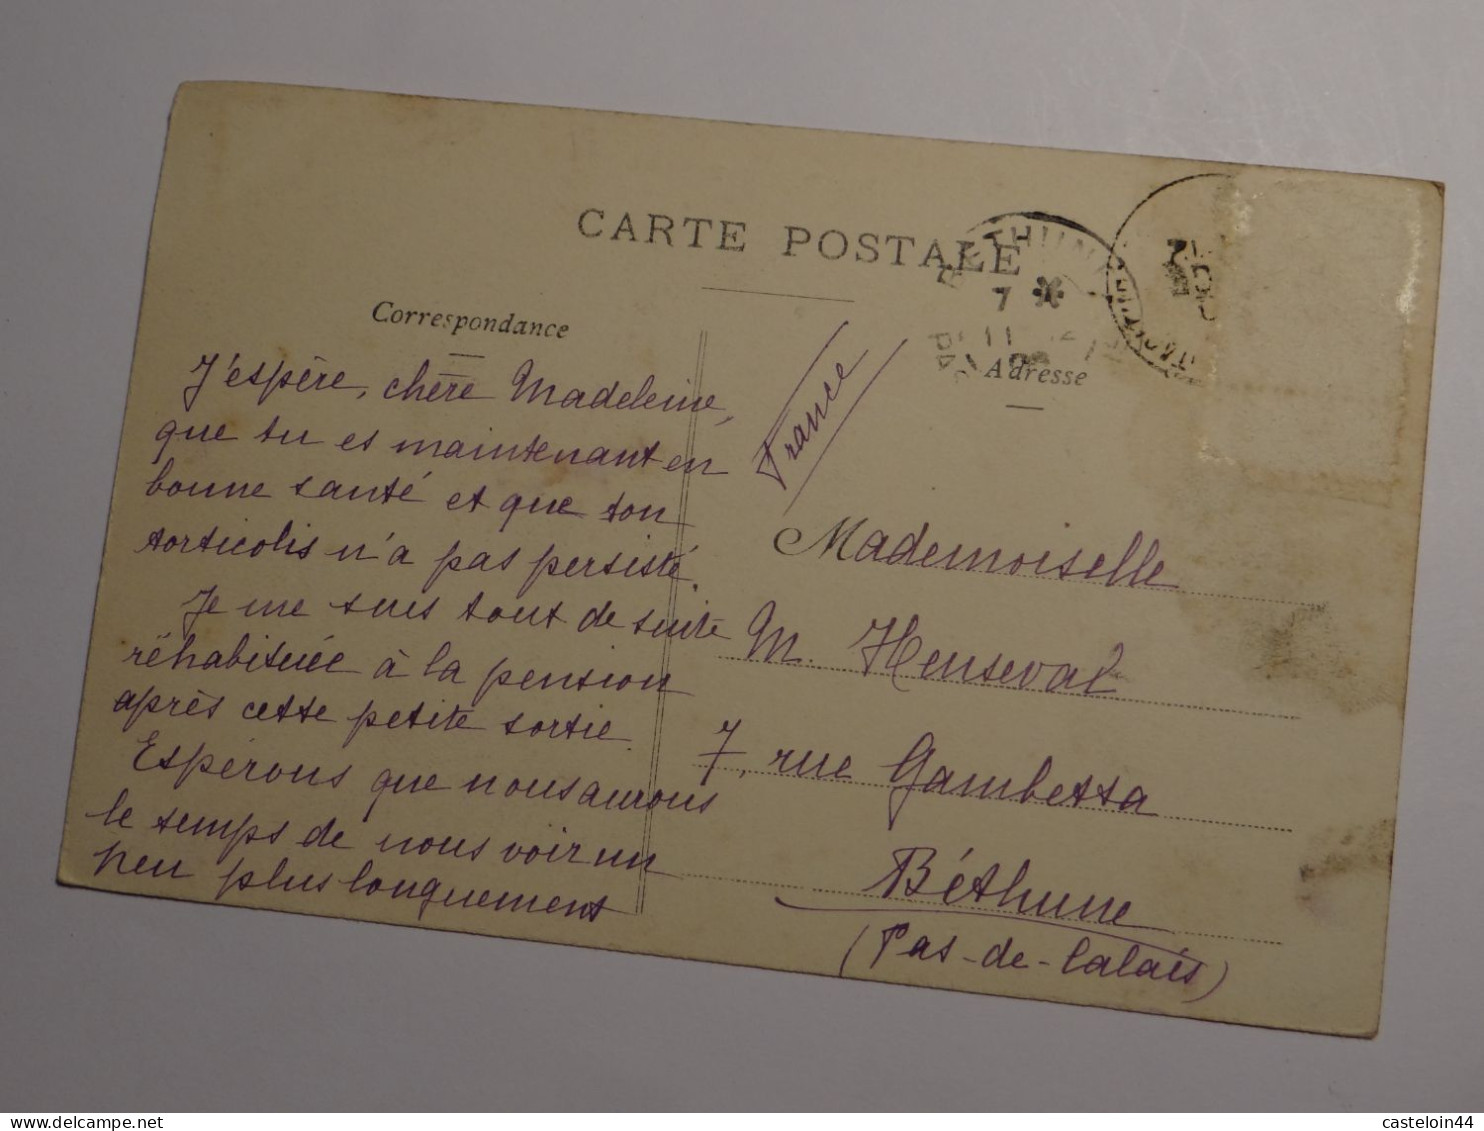 CARTE POSTALE
Correspondance
J'espère, chère Madeleine,
que tu es maintenant en
bonne santé et que ton
torticolis n'a pas persisté.
Je me suis tout de suite
réhabituée à la pension
après cette petite sortie.
Espérons que nous aurons
le temps de nous voir un
peu plus longuement
France
BETHUNE
7
11
PAS
Adresse
Mademoiselle
M. Henseval
7, rue Gambetta
Béthune
(Pas-de-Calais)
casteloin44